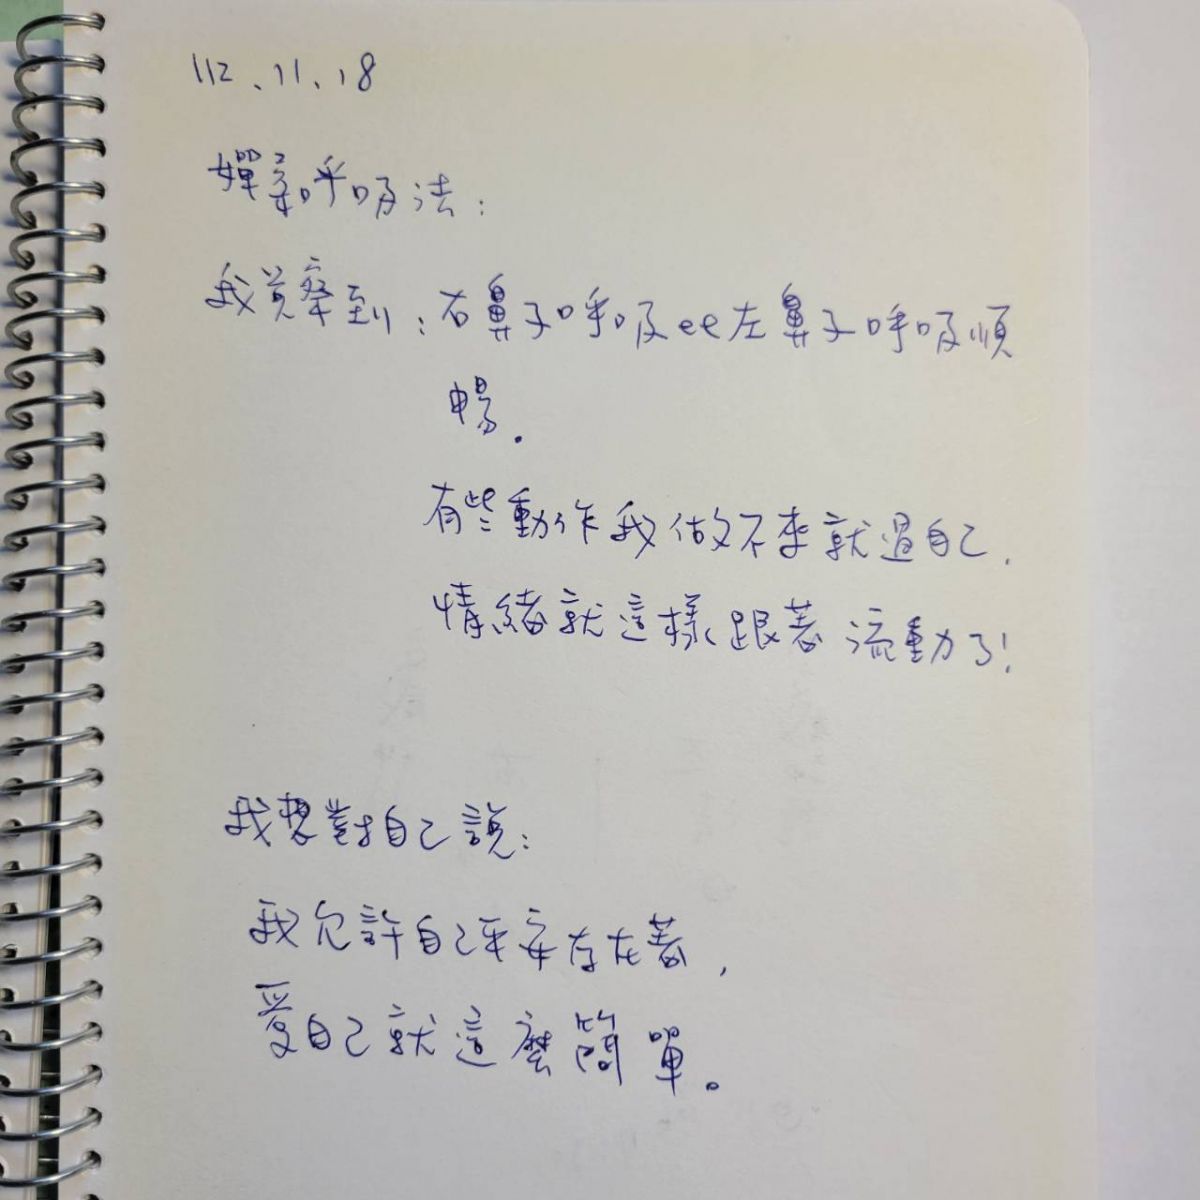 112、11、18
嬋柔呼吸法：
我覚察到：右鼻子呼吸比左鼻子呼吸順
暢。
有些動作我做不來就逼自己，
情緒就這樣跟著流動了！
我想對自己說：
我允許自己平安存在著，
愛自己就這麼簡單。